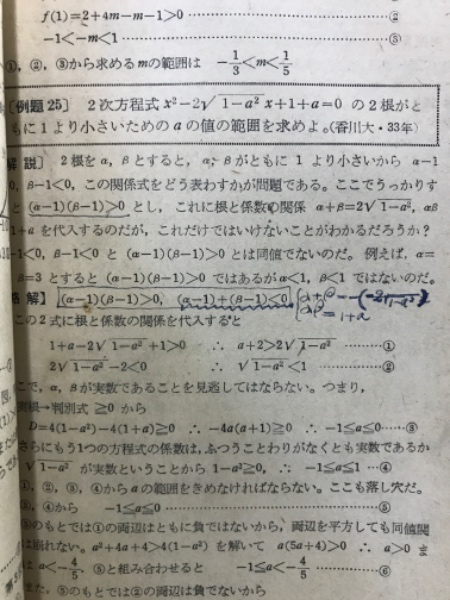 f(1)=2+4m-m-1>0 ……②
-1<-m<1 ……③
①, ②, ③から求めるmの範囲は -1/3<m<1/5
[例題25] 2次方程式 x²-2√1-a² x+1+a=0 の2根がと
もに1より小さいためのaの値の範囲を求めよ。(香川大・33年)
解説] 2根をα, βとすると, α, βがともに1より小さいから α-1
0, β-1<0, この関係式をどう表わすかが問題である。ここでうっかりす
と (α-1)(β-1)>0 とし, これに根と係数の関係 α+β=2√1-a², αβ
1+a を代入するのだが, これだけではいけないことがわかるだろうか?
-1<0, β-1<0 と (α-1)(β-1)>0 とは同値でないのだ。例えば, α=
β=3 とすると (α-1)(β-1)>0 ではあるがα<1, β<1 ではないのだ。
略解] (α-1)(β-1)>0, (α-1)+(β-1)<0
この2式に根と係数の関係を代入すると
1+a-2√1-a²+1>0 ∴ a+2>2√1-a² ……①
2√1-a²-2<0 ∴ √1-a²<1 ……②
こで, α, βが実数であることを見逃してはならない。つまり,
実根→判別式 ≧0 から
D=4(1-a²)-4(1+a)≧0 ∴ -4a(a+1)≧0 ∴ -1≦a≦0……③
さらにもう1つの方程式の係数は, ふつうことわりがなくとも実数であるか
√1-a² が実数ということから 1-a²≧0, ∴ -1≦a≦1 …④
①, ②, ③, ④からaの範囲をきめなければならない。ここも落し穴だ。
③, ④から -1≦a≦0 ……⑤
⑤のもとでは①の両辺はともに負ではないから, 両辺を平方しても同値関
は崩れない。a²+4a+4>4(1-a²) を解いて a(5a+4)>0 ∴ a>0 ま
は a<-4/5, ⑤と組み合わせると -1≦a<-4/5 ……⑥
また, ⑤のもとでは②の両辺は負でないから